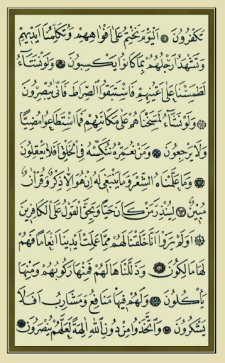 تَكْفُرُونَ ۝ اَلْيَوْمَ نَخْتِمُ عَلٰٓى اَفْوَاهِهِمْ وَتُكَلِّمُنَٓا اَيْد۪يهِمْ
وَتَشْهَدُ اَرْجُلُهُمْ بِمَا كَانُوا يَكْسِبُونَ ۝ وَلَوْ نَشَٓاءُ
لَطَمَسْنَا عَلٰٓى اَعْيُنِهِمْ فَاسْتَبَقُوا الصِّرَاطَ فَاَنّٰى يُبْصِرُونَ
۝ وَلَوْ نَشَٓاءُ لَمَسَخْنَاهُمْ عَلٰى مَكَانَتِهِمْ فَمَا اسْتَطَاعُوا مُضِيًّا
وَلَا يَرْجِعُونَ ۝ وَمَنْ نُعَمِّرْهُ نُنَكِّسْهُ فِي الْخَلْقِ اَفَلَا يَعْقِلُونَ
۝ وَمَا عَلَّمْنَاهُ الشِّعْرَ وَمَا يَنْبَغ۪ي لَهُ اِنْ هُوَ اِلَّا ذِكْرٌ وَقُرْاٰنٌ
مُب۪ينٌ ۝ لِيُنْذِرَ مَنْ كَانَ حَيًّا وَيَحِقَّ الْقَوْلُ عَلَى الْكَافِر۪ينَ
۝ اَوَلَمْ يَرَوْا اَنَّا خَلَقْنَا لَهُمْ مِمَّا عَمِلَتْ اَيْد۪ينَٓا اَنْعَامًا فَهُمْ
لَهَا مَالِكُونَ ۝ وَذَلَّلْنَاهَا لَهُمْ فَمِنْهَا رَكُوبُهُمْ وَمِنْهَا
يَأْكُلُونَ ۝ وَلَهُمْ ف۪يهَا مَنَافِعُ وَمَشَارِبُ اَفَلَا
يَشْكُرُونَ ۝ وَاتَّخَذُوا مِنْ دُونِ اللّٰهِ اٰلِهَةً لَعَلَّهُمْ يُنْصَرُونَ